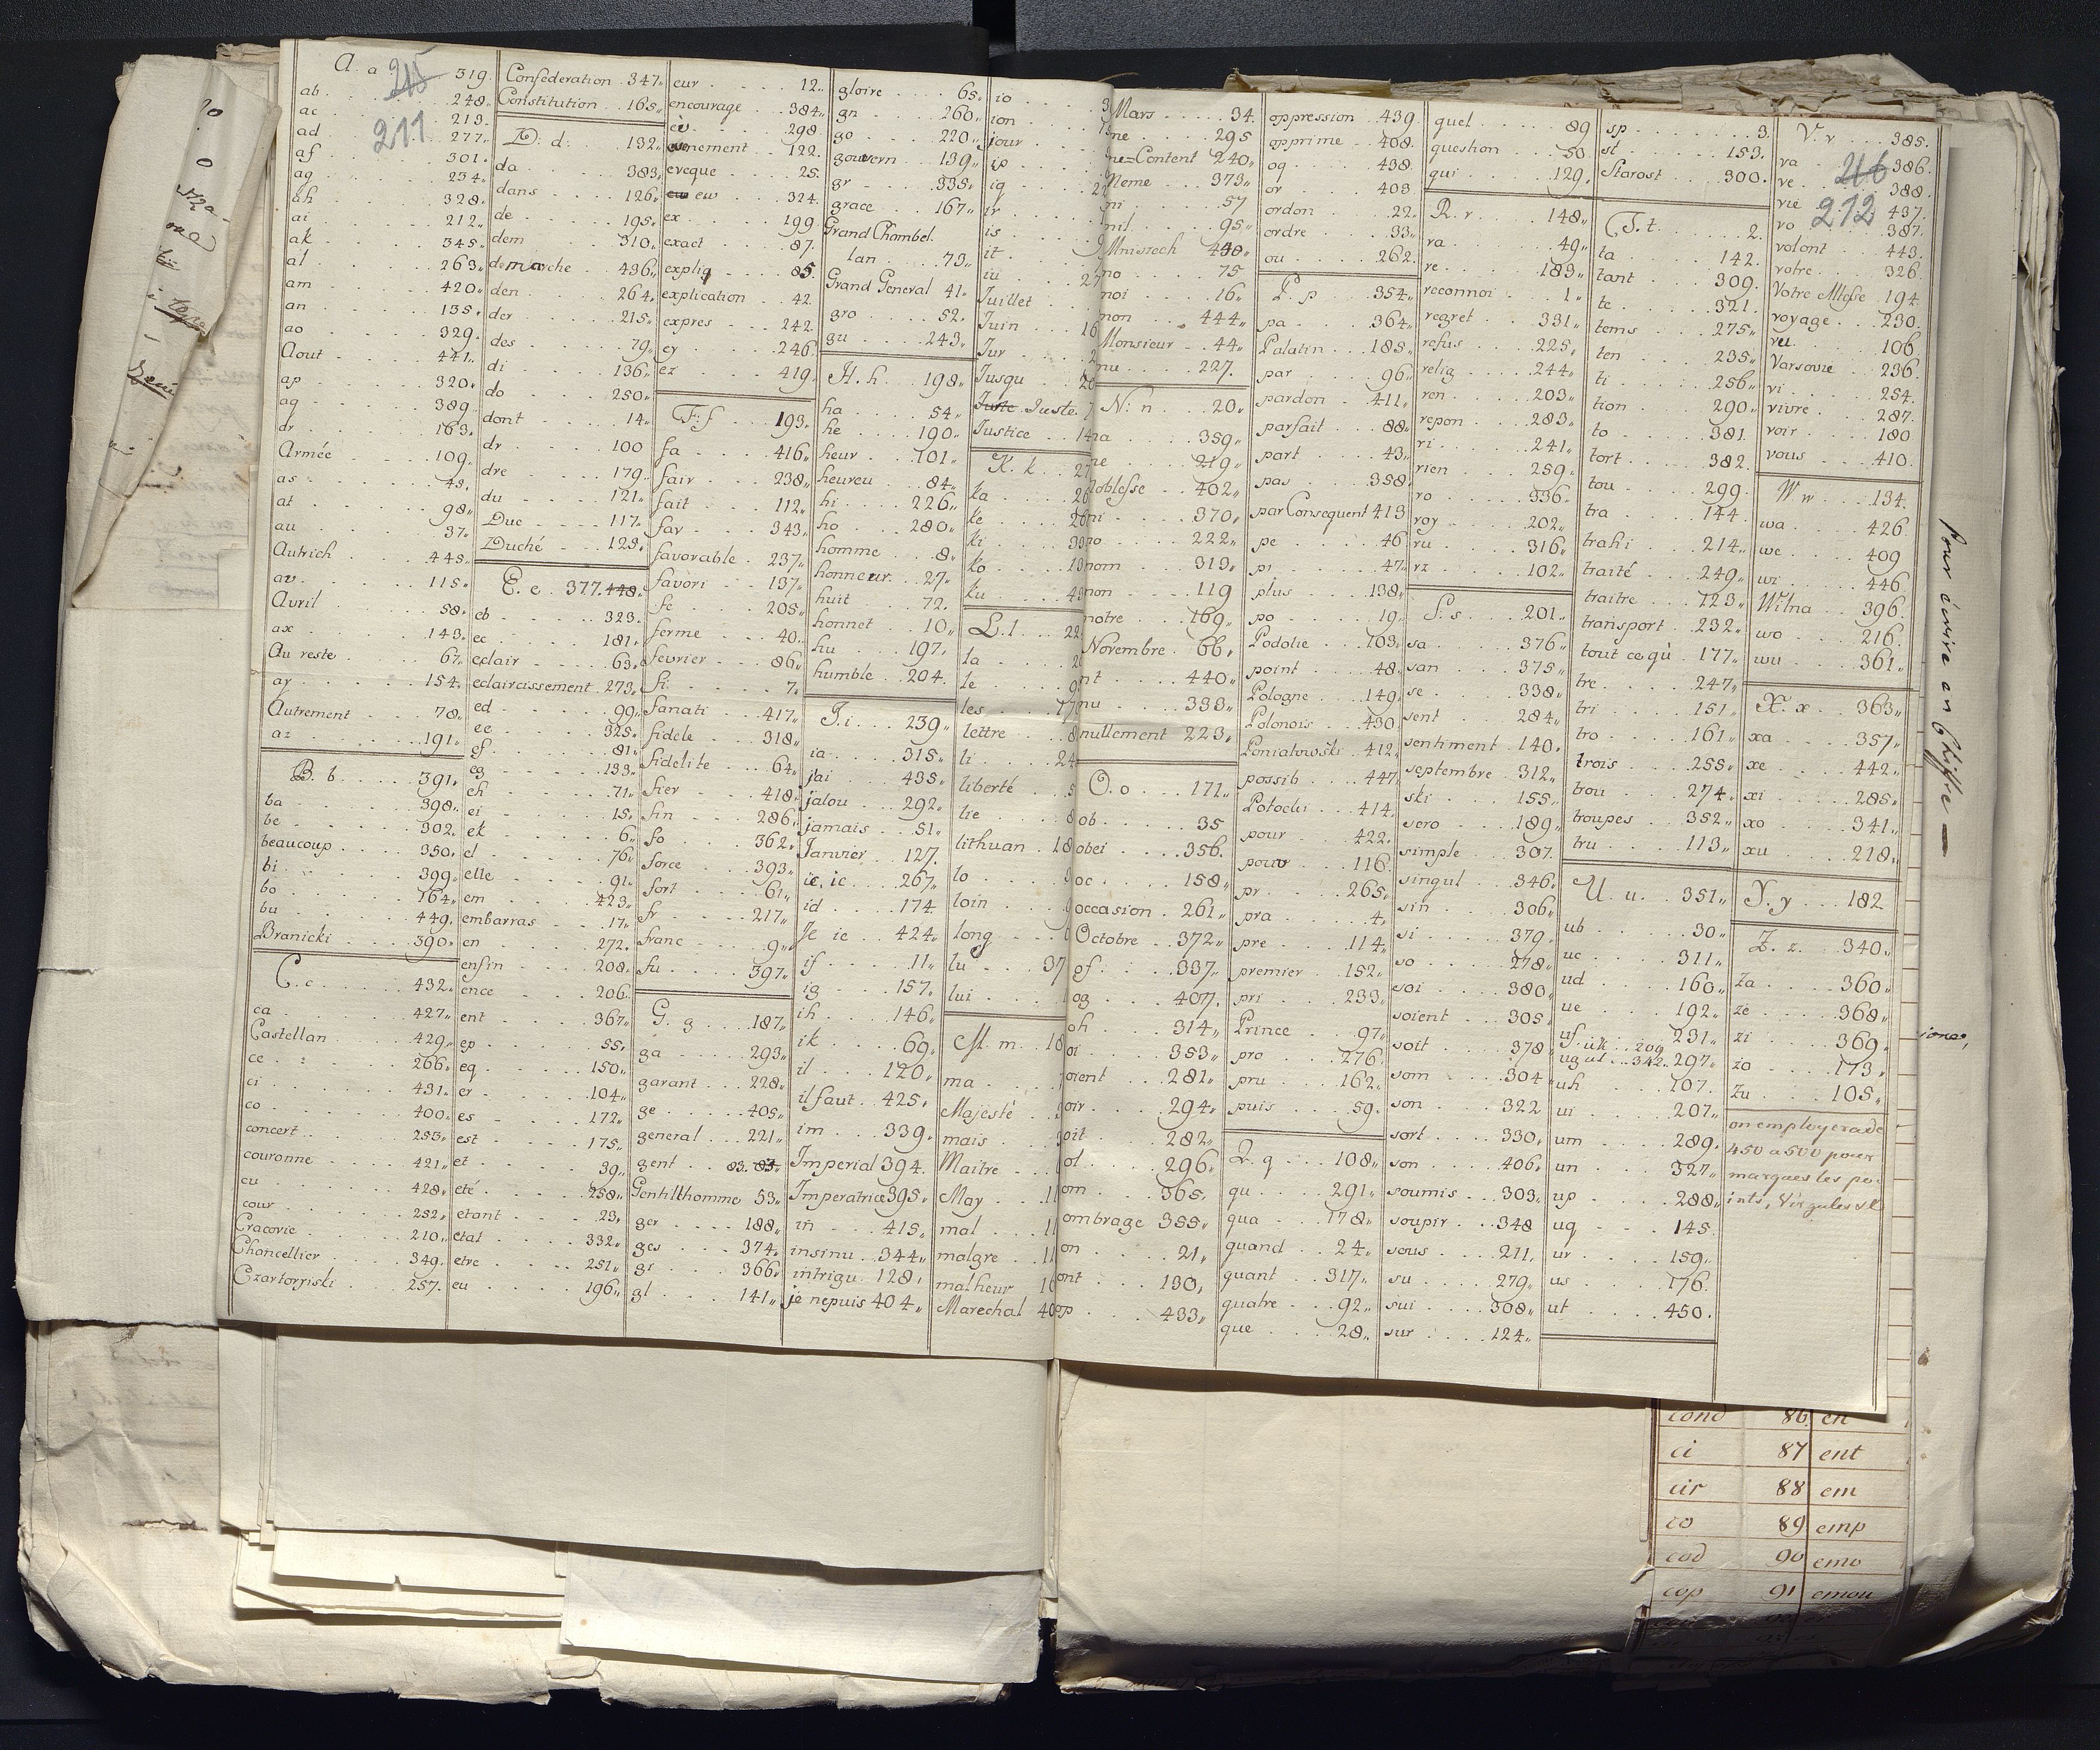 A. a 319.
ab 248.
ac 213.
ad 277.
af 301.
ag 234.
ah 328.
ai 212.
ak 345.
al 263.
am 420.
an 135.
ao 329.
Aout 441.
ap 320.
aq 389.
163.
Armée 109.
as
at 98.
au 37.
Autrich 445.
av 115.
Avril 58.
ax 143.
Au reste 67.
ay 154.
Autrement 78.
az 191.
B. b 391.
ba 398.
be 302.
beaucoup 350.
bi 399.
bo 164.
bu 449.
Branicki 390.
C. c. 432.
ca 427.
Castellan 429.
ce 266.
ci 431.
co 400.
concert 253.
couronne 421.
cu 428.
cour 252.
Cracovie 210.
Chancellier 349.
Czartoryiski 257.
Confederation 347.
Constitution 165.
D. d. 132.
da 383.
dans 126.
de 195.
dem 310.
demarche 436.
den 264.
der 215.
des 79.
di 136.
do 250.
dont 14.
dr 100
dre 179.
du 121.
Duc 117.
Duché 125.
E. e. 377. 448.
eb 323.
ec 181.
eclair 63.
eclaircissement 273.
ed 99.
ee 325.
ef 81.
eg 133.
eh 71.
ei 15.
ek 6.
el 76.
elle 91.
em 423.
embarras 17.
en 272.
enfin 208.
ence 206.
ent 367.
ep 55.
eq 150.
er 104.
es 172.
est 175.
et 39.
eté 258.
etant 23.
etat 332.
etre 251.
eu 196.
eur 12.
encourage 384.
ev 298
evenement 122.
eveque 25.
ew 324.
ex 199
exact 87.
expliq 85.
explication 42.
expres 242.
ey 246.
ez 419.
F. f 193.
fa 416.
fair 238.
fait 112.
fav 343.
favorable 237.
favori 137.
fe 205.
ferme 40.
fevrier 86.
fi 7.
fanati 417.
fidele 318.
fidelite 64.
fier 418.
fin 286.
fo 362.
force 393.
fort 61.
fr 217.
franc 9.
fu 397.
G. g 187.
ga 293.
garant 228.
ge 405.
general 221.
gent 83. 83.
Gentilhomme 53.
ger 188.
ges 374.
gi 366.
gl 141.
gloire 65.
gn 260.
go 220.
gouvern 139.
gr 335.
grace 167.
Grand Chambel.
lan 73.
Grand General 41.
gro 52.
gu 243.
H. h 198.
ha 54.
he 190.
heur 101.
heureu 84.
hi 226.
ho 280.
homme 8.
honneur 27.
huit 72.
honnet 10.
hu 197.
humble 204.
I. i 239.
ia 315.
jai 435.
jalou 292.
jamais 51.
Janvier 127.
ie. ic 267.
id 174.
Je ie 424.
if 11.
ig 157.
ih 146.
ik 69.
il 120.
il faut 425.
im 339.
Imperial 394.
Imperatrice 395.
in 415.
insinu 344.
intrigu 128.
je nepuis 404.
io
ion
jour
ip
iq
ir
is
it
iu
Juillet
Juin
Jur
Jusqu
Juste Juste
Justice
K. k
ka
ke
ki
ko
ku
L. l
la
le
les
lettre
li
liberté
lie
lithuan
lo
loin
long
lu
lui
M. m.
ma
Majesté
mais
Maitre
May
mal
malgre
malheur
Marechal
Mars 34.
me 295
me=Content 240.
Meme 373.
mi 57
mil 95.
Mniszech
mo 75
moi 16.
mon 444.
Monsieur 44.
mu 227.
N. n 20.
na 359.
ne 219.
noblesse 402.
ni 370.
no 222.
nom 313.
non 119
notre 169.
Novembre 66.
nt 440.
nu 333.
nullement 223.
O. o 171.
ob 35
obei 356.
oc 158.
occasion 261.
Octobre 372.
of 337.
og 407.
oh 314.
oi 353.
oient 281.
oir 294.
oit 282.
ol 296.
om 365.
ombrage 355.
on 21.
ont 130.
op 433.
oppression 439.
opprime 408.
oq 438.
or 403
ordon 22.
ordre 33.
ou 262.
P. p 354.
pa 364.
Palatin 185.
par 96.
pardon 411.
parfait 88.
part 43.
pas 358.
par Consequent 413
pe 46
pi 47.
plus 138.
po 19.
Podolie 103.
point 48.
Pologne 149.
Polonois 430.
Poniatowski 412.
possib 447.
Potocki 414.
pour 422.
pouv 116.
pr 265.
pra 4.
pre 114.
premier 152.
pri 233.
Prince 97.
pro 276.
pru 162.
puis 59.
Q. q 108.
qu 291.
qua 178.
quand 24.
quant 317.
quatre 92.
que 28.
quel 89
question 50.
qui 129.
R. r 148.
ra 49.
re 183.
reconnoi 1.
regret 331.
refus 225.
relig 244.
ren 203.
repon 283.
ri 241.
rien 259.
ro 336.
roy 202.
ru 316.
rz 102.
S. s 201.
sa 376.
san 375.
se 338.
sent 284.
sentiment 140.
septembre 312.
ski 155.
sero 189.
simple 307.
singul 346.
sin 306.
si 379.
so 278.
soi 380.
soient 305.
soit 378.
som 304.
son 322
sort 330.
406.
soumis 303.
soupir 348
sous 211.
su 279.
sui 308.
sur 124.
sp 3.
st 153.
Starost 300.
T. t. 2.
ta 142.
tant 309.
te 321.
tems 275.
ten 235.
ti 256.
tion 290.
to 381.
tort 382.
tou 299.
tra 144.
trahi 214.
traité 249.
traitre 123.
transport 232.
tout ce qu 177.
tre 247.
tri 151.
tro 161.
trois 255.
trou 274.
troupes 352.
tru 113.
U. u. 351.
ub 30.
uc 311.
ud 160.
ue 192.
uf 231.
ük 209
ug ul 342. 297.
uh 107.
ui 207.
um 289.
un 327.
up 288.
uq 145.
ur 159.
us 176.
ut 450.
V. v 385.
va 386.
ve 388.
vie 437.
vo 387.
volont 443.
votre 326.
Votre Altesse 194.
voyage 230.
vu 106.
Varsovie 236.
vi 254.
vivre 287.
voir 180
vous 410.
W. w 134.
wa 426.
we 409
wi 446.
Wilna 396.
wo 216.
wu 361.
X. x 363.
xa 357.
xe 442.
xi 285.
xo 341.
xu 218.
Y. y 182
Z. z. 340.
za 360.
ze 368.
zi 369.
zo 173.
zu 105.
on employerade
450 a 500 pour
marques les po-
ints, Virgules
215
211
216
212
pour ecrire an Chiffre
cond 86 en
ci 87 ent
cir 88 em
co 89 emp
cod 90 emo
cop 91 emou